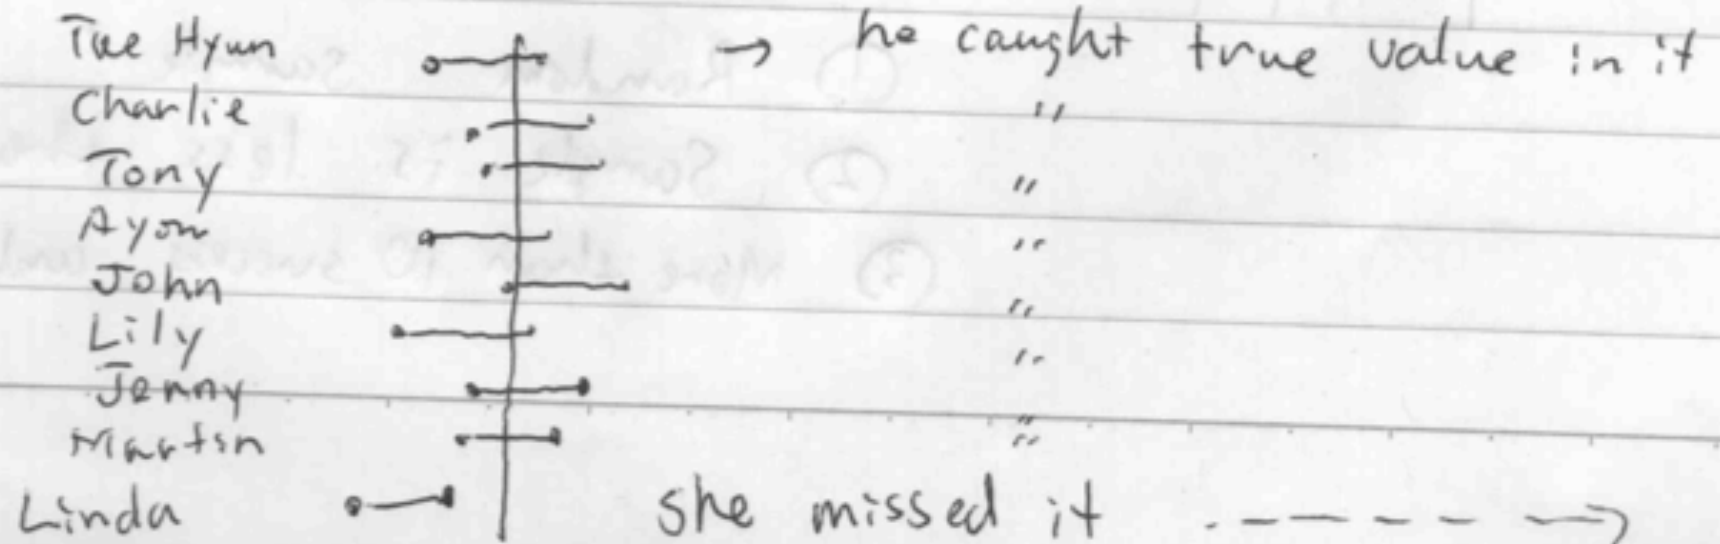 Tae Hyun → he caught true value in it
Charlie "
Tony "
Ayon "
John "
Lily "
Jenny
Martin "
Linda she missed it